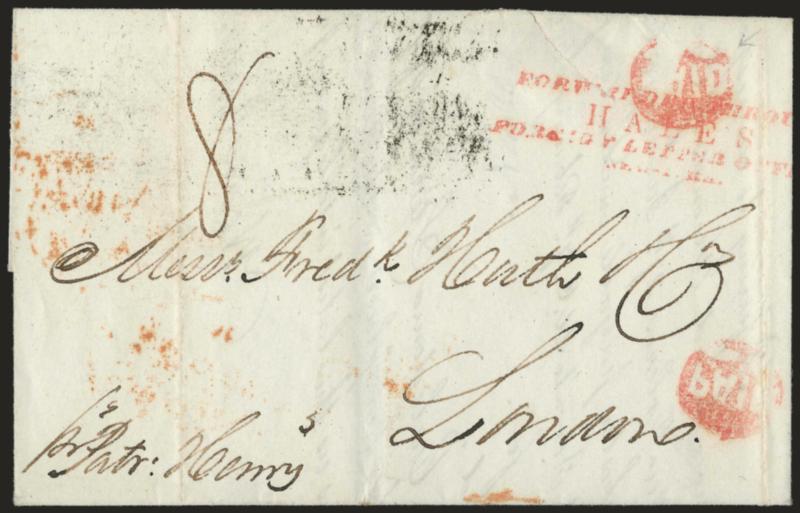 8
FORWARDED THROU
HALES
FOREIGN LETTER OFFI
NEW YORK.
Messrs. Fredk. Huth
London.
pr Patr: Henry